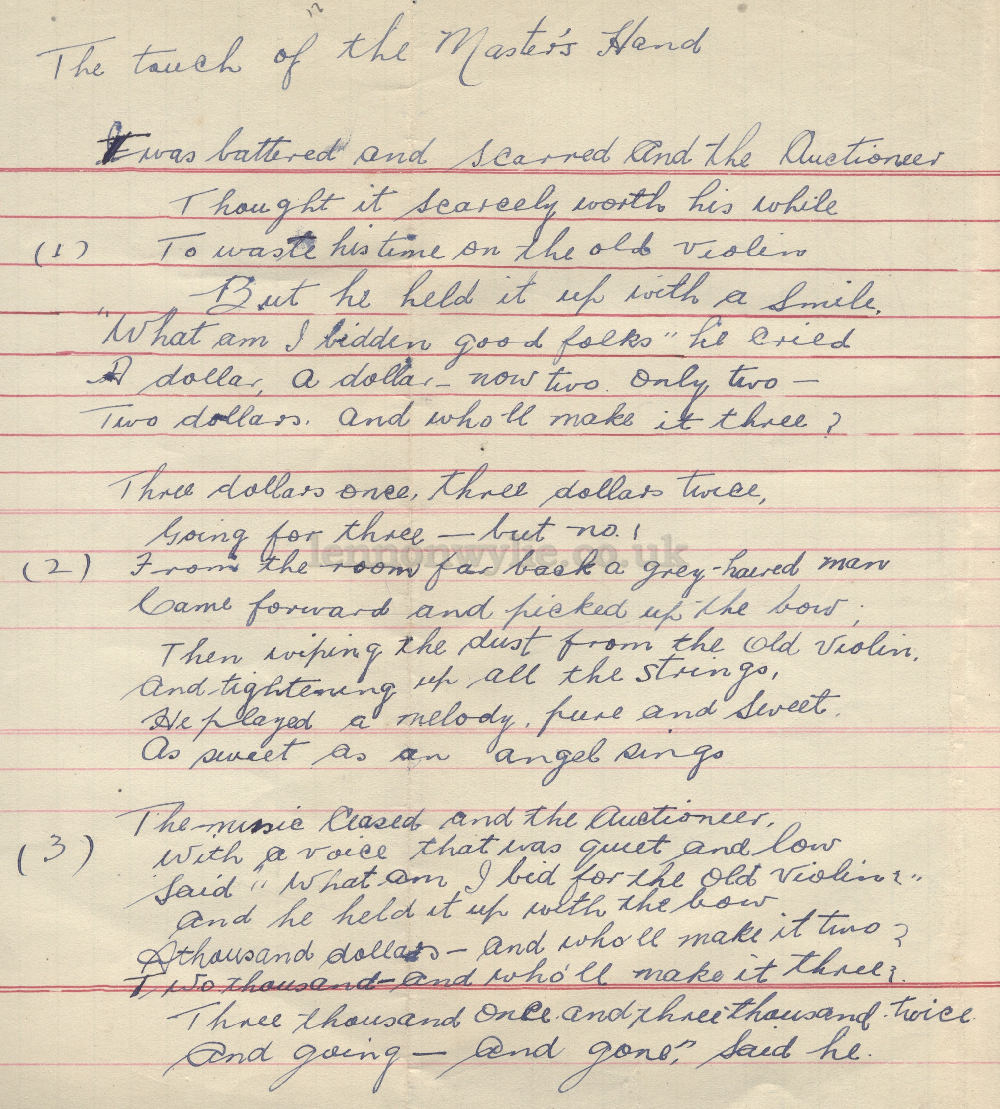 The touch of the Master's Hand
It was battered and scarred and the Auctioneer
Thought it scarcely worth his while
(1) To waste his time on the old violin
But he held it up with a smile.
"What am I bidden good folks" he cried
A dollar, a dollar - now two. Only two —
Two dollars. and who'll make it three?
Three dollars once, three dollars twice,
Going for three — but no!
lennonwylie.co.uk
(2) From the room far back a grey-haired man
Came forward and picked up the bow;
Then wiping the dust from the old violin,
And tightening up all the strings,
He played a melody, pure and sweet.
As sweet as an angel sings
The music ceased and the Auctioneer,
(3) With a voice that was quiet and low
Said "What am I bid for the old violin?"
And he held it up with the bow
A thousand dollars - and who'll make it two?
Two thousand - and who'll make it three?
Three thousand once and three thousand twice
And going — and gone", said he.